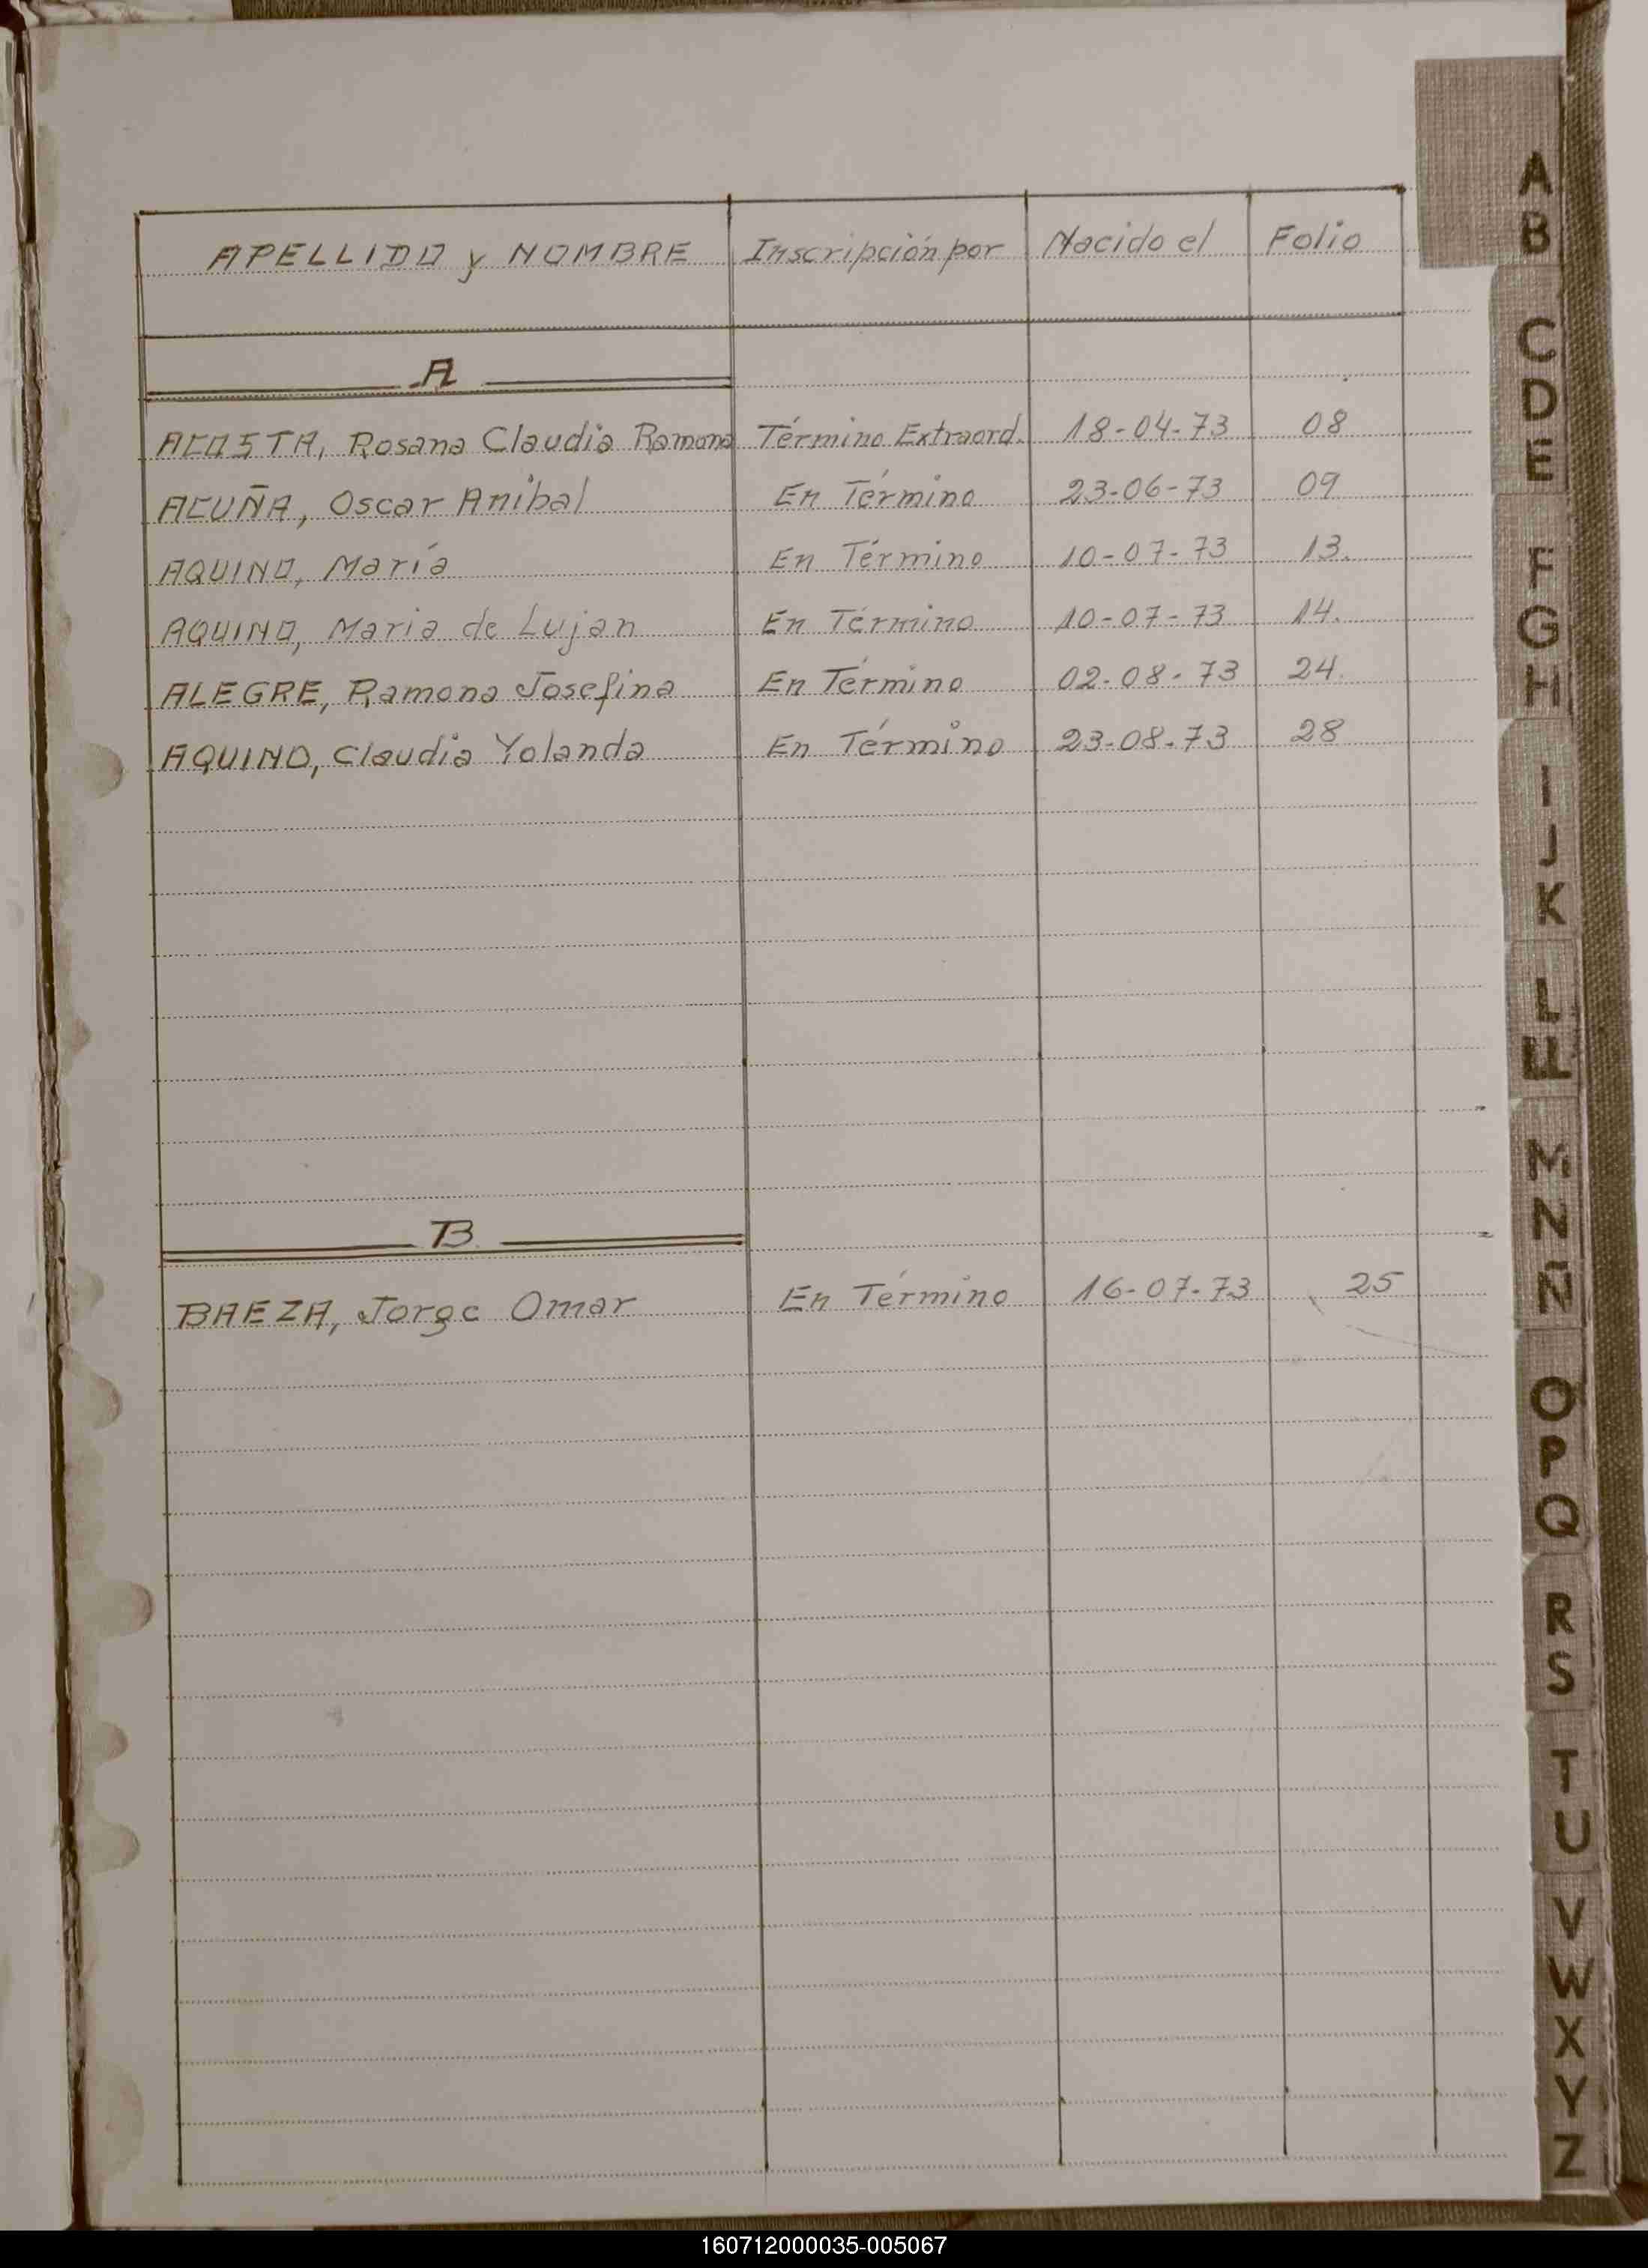 APELLIDO y NOMBRE Inscripción por Nacido el Folio
A
ACOSTA, Rosana Claudia Ramona Término Extraord. 18-04-73 08
ACUÑA, Oscar Anibal En Término 23-06-73 09
AQUINO, María En Término 10-07-73 13.
AQUINO, Maria de Lujan En Término 10-07-73 14.
ALEGRE, Ramona Josefina En Término 02-08-73 24.
AQUINO, Claudia Yolanda En Término 23-08-73 28
B.
BAEZA, Jorge Omar En Término 16-07-73 25
A
B
C
D
E
F
G
H
I
J
K
L
LL
M
N
Ñ
O
P
Q
R
S
T
U
V
W
X
Y
Z
160712000035-005067